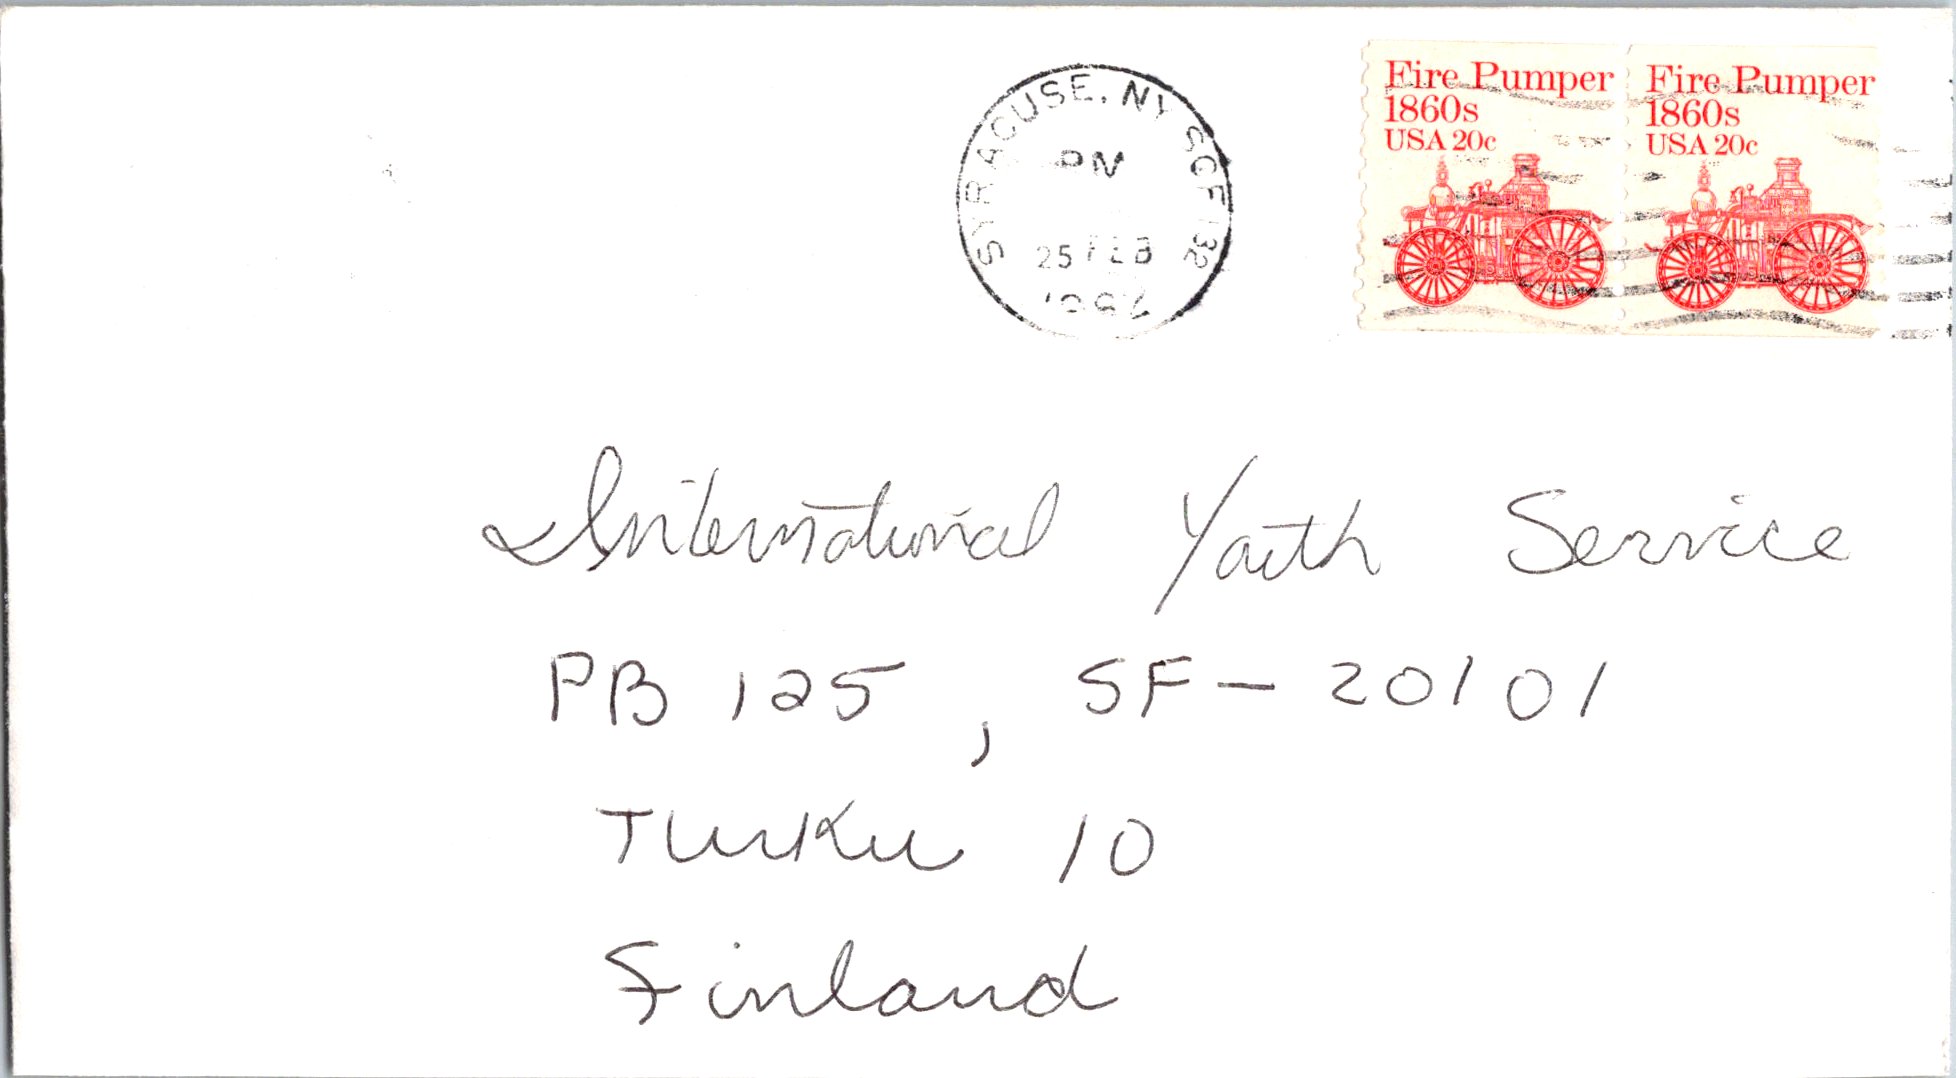 SYRACUSE, NY SCF 132
PM
25 FEB
Fire Pumper
1860s
USA 20c
Fire Pumper
1860s
USA 20c
International Youth Service
PB 125, SF-20101
Turku 10
Finland